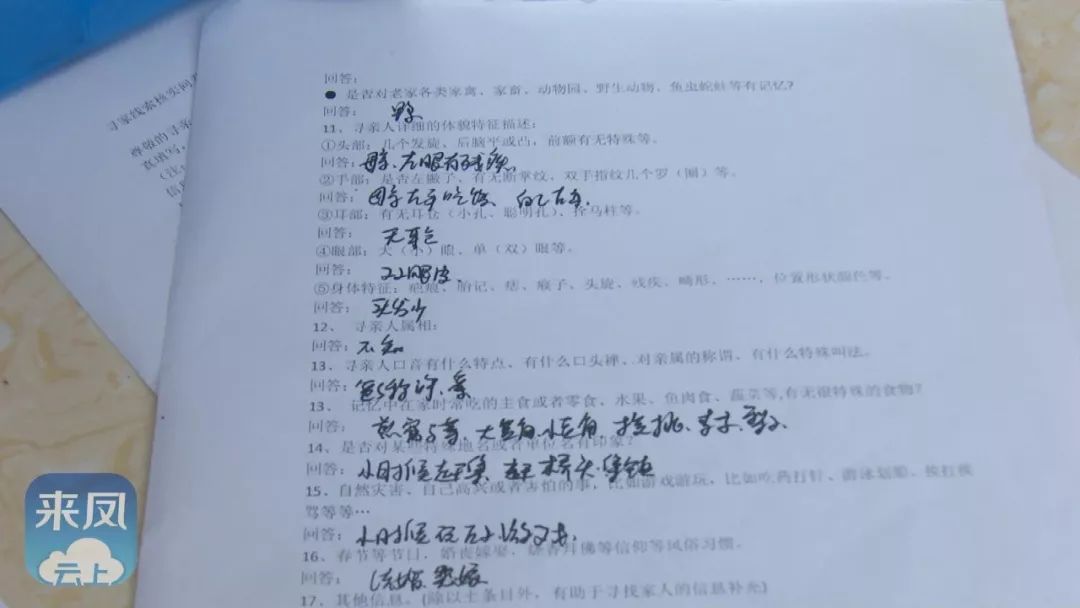 回答:
● 是否对老家各类家禽、家畜、动物园、野生动物、鱼虫蛇蛙等有记忆?
回答:
11、寻亲人详细的体貌特征描述:
①头部:几个发旋、后脑平或凸,前额有无特殊等。
回答:母亲左眼有残疾.
②手部:是否左撇子、有无断掌纹,双手指纹几个罗(圈)等。
回答:母亲左手吃饭 自己右手.
③耳部:有无耳仓(小孔、聪明孔)、拴马柱等。
回答:无耳仓
④眼部:大(小)眼、单(双)眼等。
回答:双眼皮
⑤身体特征:疤痕、胎记、痣、瘊子、头旋、残疾、畸形、……,位置形状颜色等。
回答:头发少
12、 寻亲人属相:
回答:不知
13、寻亲人口音有什么特点、有什么口头禅、对亲属的称谓、有什么特殊叫法。
回答:
13、 记忆中在家时常吃的主食或者零食、水果、鱼肉食、蔬菜等,有无很特殊的食物?
回答:
14、是否对某些特殊地名或者单位名有印象?
回答:小时候赶集 桥头 集镇
15、自然灾害、自己高兴或者害怕的事,比如游戏游玩,比如吃药打针、游泳划船、挨打挨
骂等等…
回答:小时候
16、春节等节日,婚丧嫁娶、烧香拜佛等信仰等风俗习惯。
回答:
17、其他信息。(除以上条目外,有助于寻找家人的信息补充)
寻家线索核实问
尊敬的寻亲
真填写,
(注
信息
来凤
云上